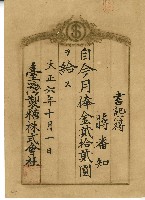 書記補
蔣番知
自今月俸金貳拾貳圓
ヲ給ス
大正六年十月一日
臺灣製糖株式會社